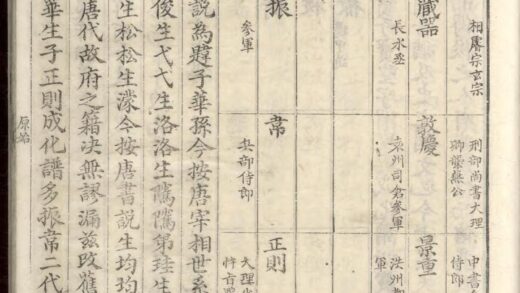 相肅宗玄宗
刑部尚書大理
卿
縣公
中書
侍郎
藏器
長水丞
敦慶
袁州司倉參軍
景重
洪州
軍
振
參軍
常
兵部侍郎
正則
大理
說為踶子華孫今按唐宰相世系
俊生弋弋生洛洛生騰騰弟珪生
生松松生濛今按唐書說生均均
唐代故府之籍决無謬漏兹改舊
華生子正則成化譜多振常二代
原始